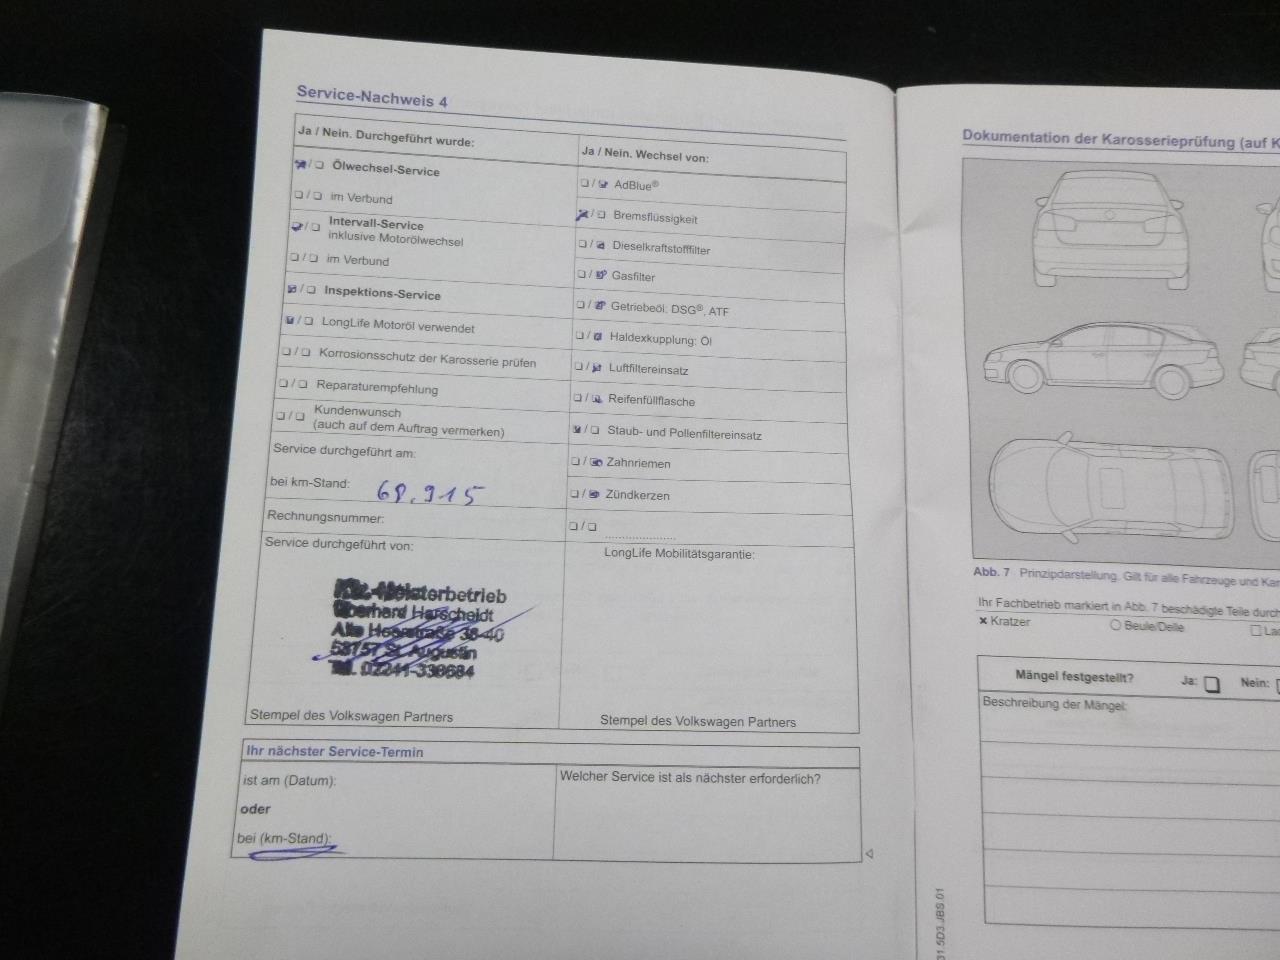 Service-Nachweis 4
Ja / Nein. Durchgeführt wurde:
Ölwechsel-Service
im Verbund
Intervall-Service
inklusive Motorölwechsel
im Verbund
Inspektions-Service
LongLife Motoröl verwendet
Korrosionsschutz der Karosserie prüfen
Reparaturempfehlung
Kundenwunsch
(auch auf dem Auftrag vermerken)
Service durchgeführt am:
bei km-Stand: 68.915
Rechnungsnummer:
Service durchgeführt von:
Kfz.-Meisterbetrieb
Eberhard Harscheidt
Alte Heerstraße 38-40
53757 St. Augustin
Tel. 02241-338684
Stempel des Volkswagen Partners
Ja / Nein. Wechsel von:
AdBlue®
Bremsflüssigkeit
Dieselkraftstofffilter
Gasfilter
Getriebeöl: DSG®, ATF
Haldexkupplung: Öl
Luftfiltereinsatz
Reifenfüllflasche
Staub- und Pollenfiltereinsatz
Zahnriemen
Zündkerzen
LongLife Mobilitätsgarantie:
Stempel des Volkswagen Partners
Ihr nächster Service-Termin
ist am (Datum):
oder
bei (km-Stand):
Welcher Service ist als nächster erforderlich?
Dokumentation der Karosserieprüfung (auf K
Abb. 7 Prinzipdarstellung. Gilt für alle Fahrzeuge und Kar
Ihr Fachbetrieb markiert in Abb. 7 beschädigte Teile durch
× Kratzer
Beule/Delle
Lac
Mängel festgestellt? Ja: Nein:
Beschreibung der Mängel:
31.5D3.JBS.01